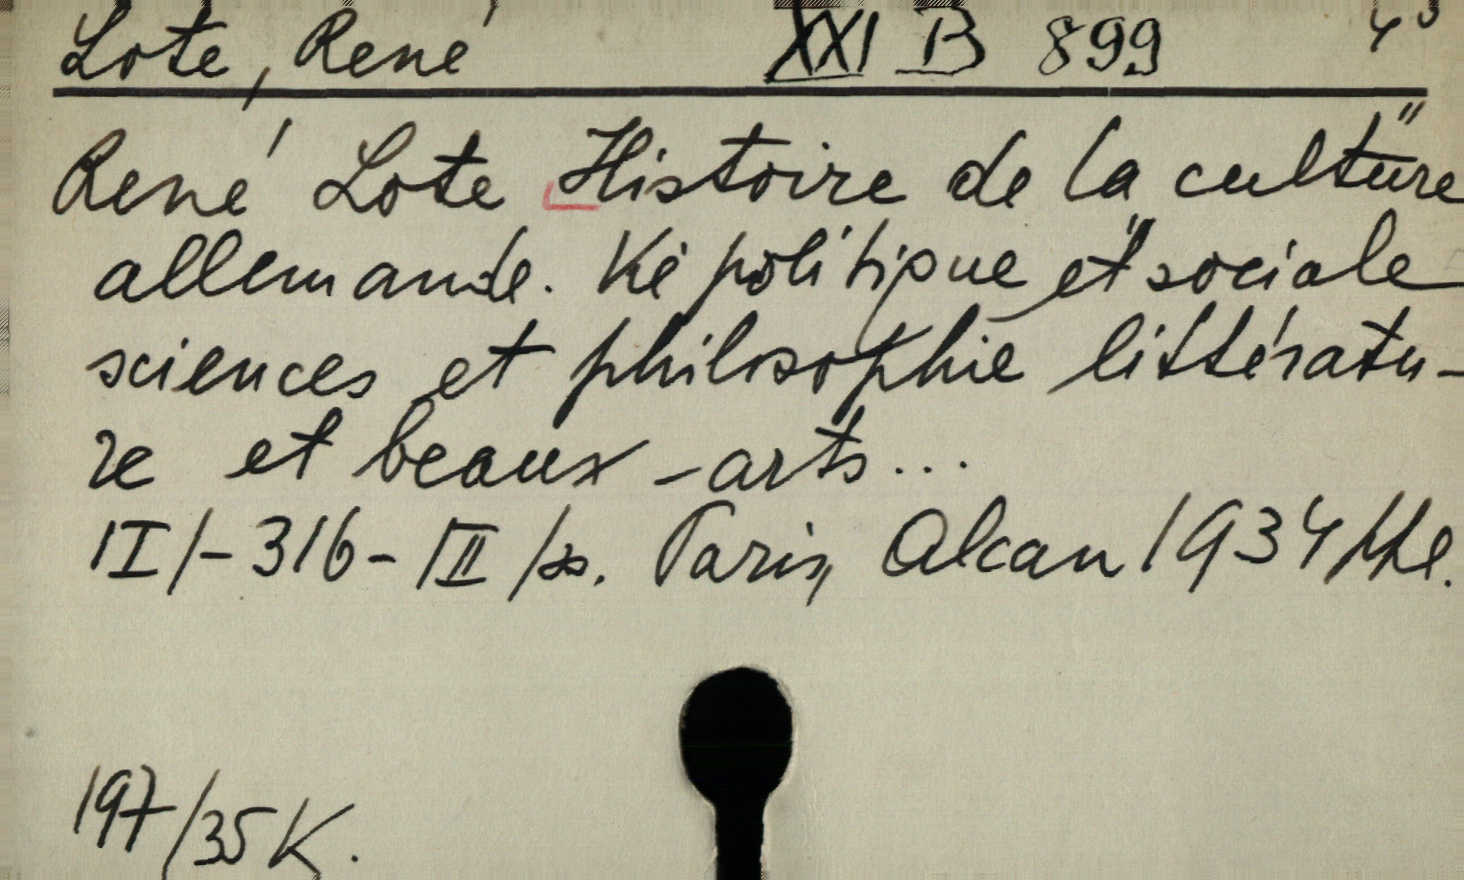 Lote, René XXI B 899 4°
René Lote Histoire de la culture
allemande. Vie politique et sociale
sciences et philosophie littératu-
re et beaux-arts...
/I/-316-/II/
Paris, Alcan 1934
197/35 K.